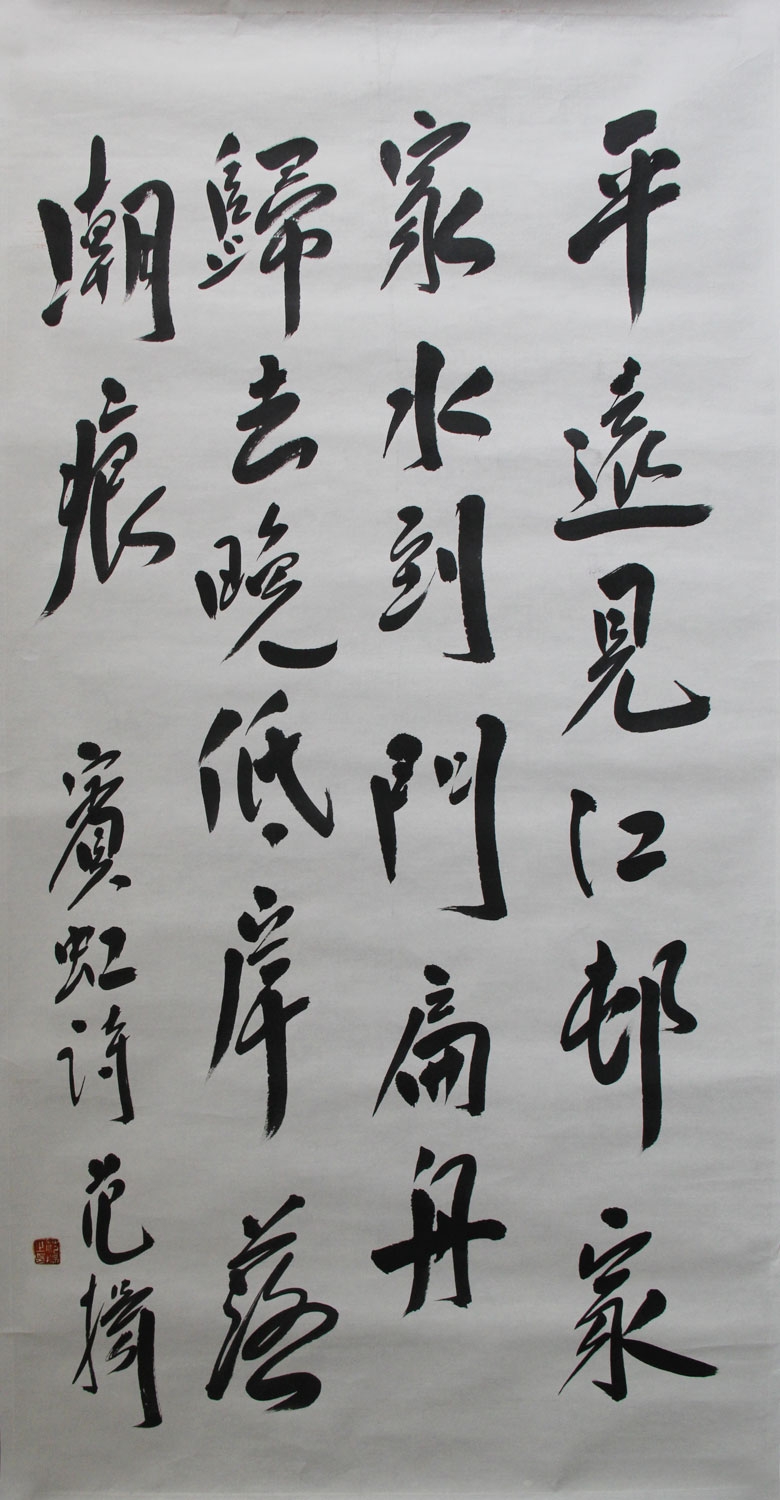 平遠見江邨家
家水到門扁舟
歸去晚低岸落
潮痕 賓虹诗 范